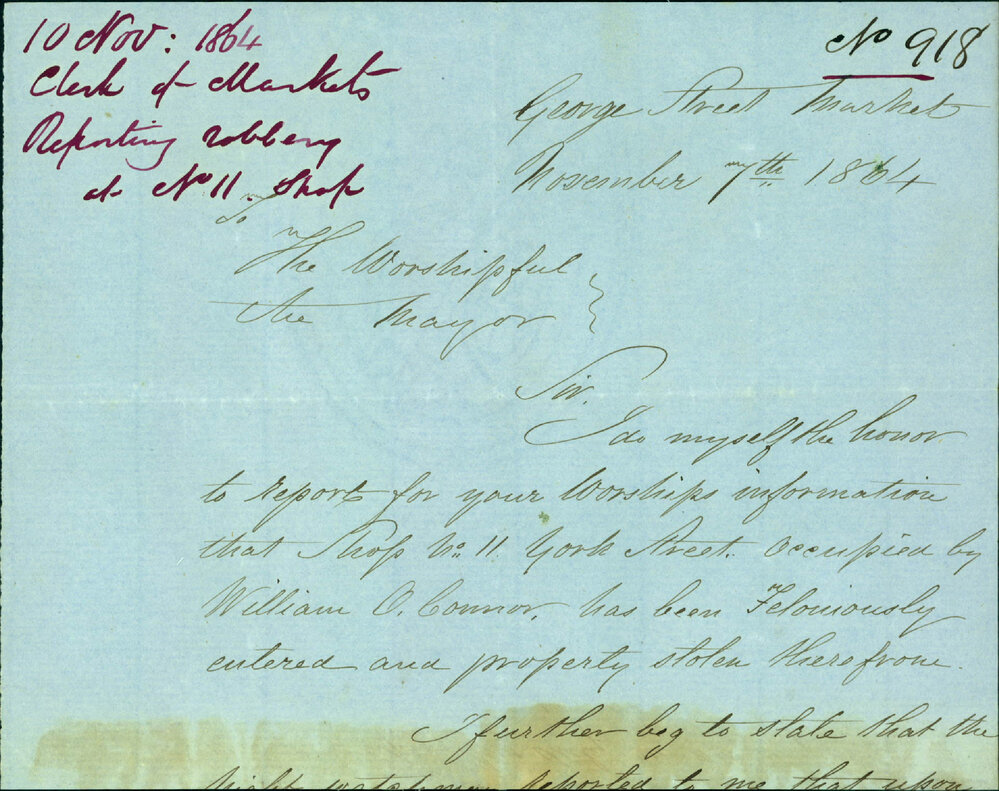 10 Nov: 1864
Clerk of Markets
Reporting robbery
at No 11. Shop
No 918
George Street Markets
November 7th 1864
To
The Worshipful
the Mayor
Sir.
I do myself the honor
to report for your Worships information
that Shop No. 11 York Street. Occupied by
William O. Connor, has been Feloniously
entered and property stolen therefrom.
I further beg to state that the
night watchman reported to me that upon